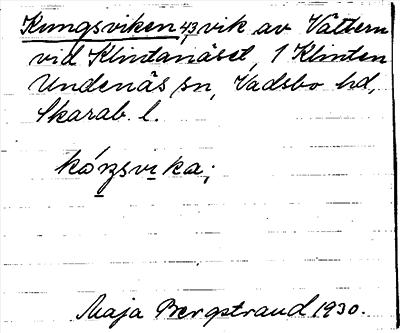 Kungsviken 43, vik av Vättern
vid Klintanäset, 1 Klinten
Undenäs sn, Vadsbo hd,
Skarab. l.
kóŋsvika;
Maja Bergstrand 1930.